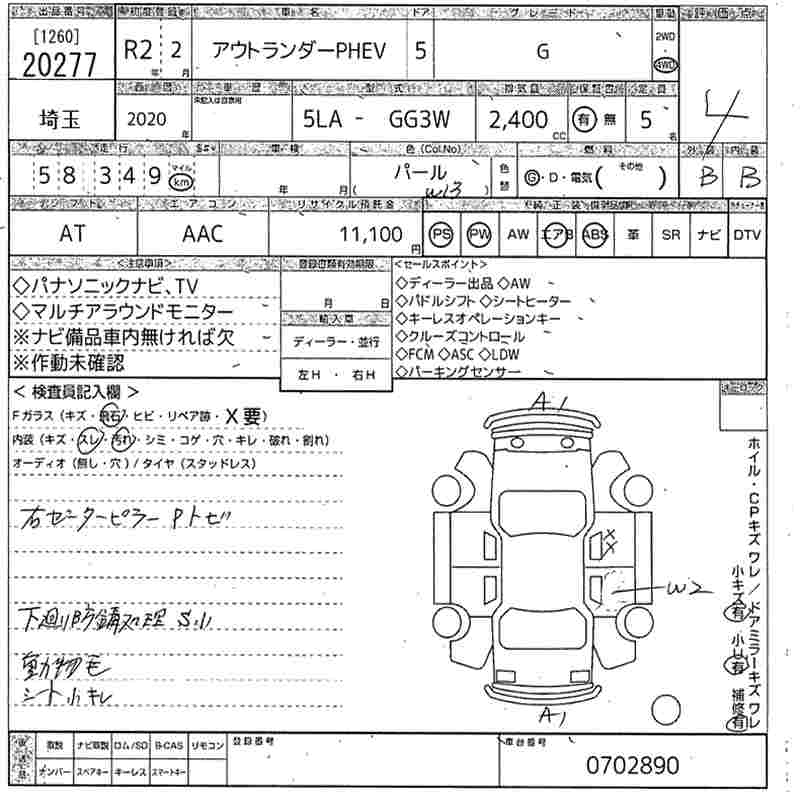 出品番号 初度登録 車名 ドア グレード 駆動 評価点
[1260]
20277
R2 年 2 月
アウトランダーPHEV
5
G
2WD
4WD
4
車歴 型式 排気量 保証書 定員
埼玉
2020 年
未記入は自家用
5LA - GG3W
2,400 CC
有 無
5 名
走行 車検 色 (Col.No) 燃料 外装 内装
58 349 マイル km
年 月
パール
( W13 )
色替
G・D・電気( その他 )
B B
シフト エアコン リサイクル預託金
AT
AAC
11,100 円
PS PW AW エアB ABS 革 SR ナビ DTV
<注意事項>
◇パナソニックナビ、TV
◇マルチアラウンドモニター
※ナビ備品車内無ければ欠
※作動未確認
登録書類有効期限
月 日
輸入車
ディーラー・並行
左H ・ 右H
<セールスポイント>
◇ディーラー出品 ◇AW
◇パドルシフト ◇シートヒーター
◇キーレスオペレーションキー
◇クルーズコントロール
◇FCM ◇ASC ◇LDW
◇パーキングセンサー
< 検査員記入欄 >
Fガラス (キズ・飛石・ヒビ・リペア跡・X要)
内装 (キズ・スレ・汚れ・シミ・コゲ・穴・キレ・破れ・割れ)
オーディオ (無し・穴) / タイヤ (スタッドレス)
右センターピラー Pトビ
下廻り防錆処理 S小
動物毛
シート小キレ
A1
X
X
W2
A1
ホイル・CPキズ ワレ / ドアミラーキズ ワレ
小キズ 有 小U 有 補修 有
取説 ナビ取説 ロム/SD B-CAS リモコン
ナンバー スペアキー キーレス スマートキー
登録番号
車台番号
0702890